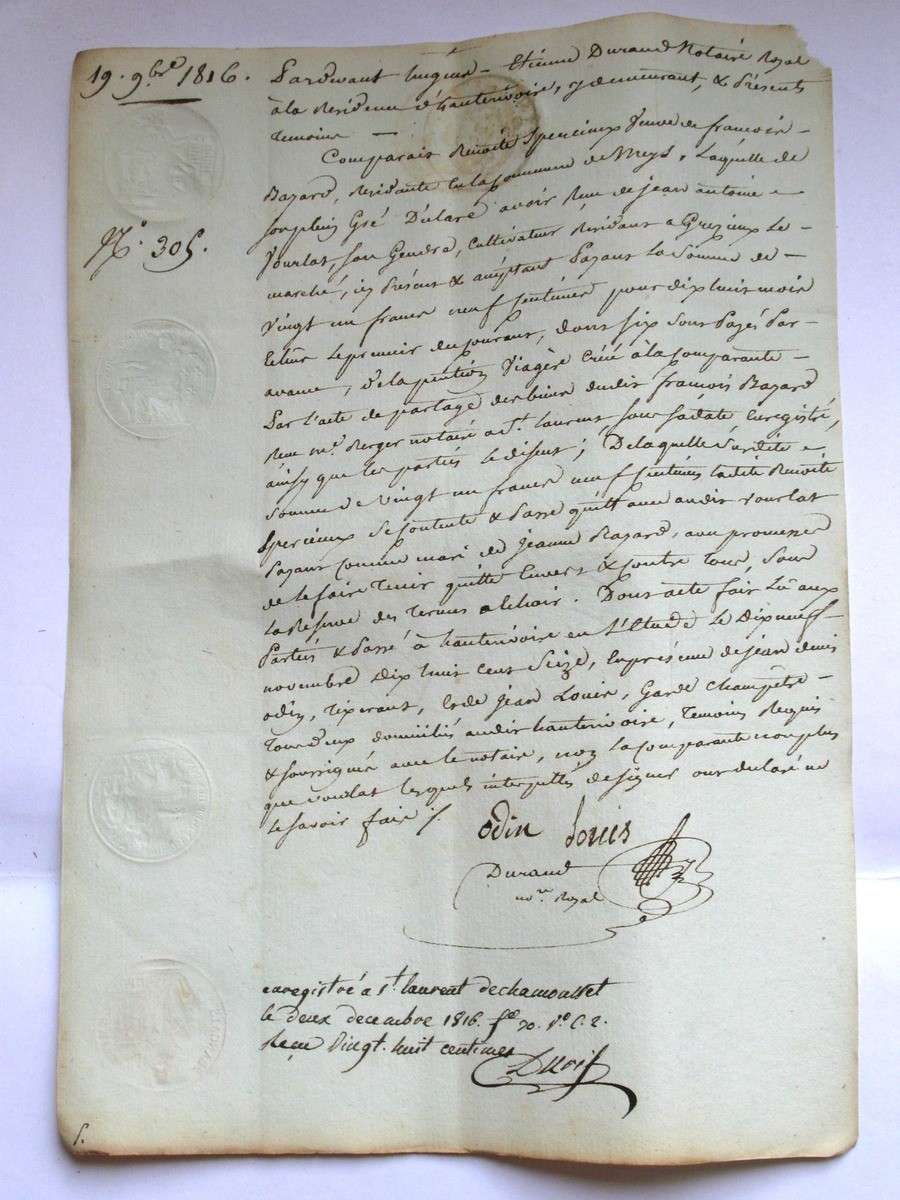 19. 9bre 1816.
Pardevant hugues - Etienne Durand Notaire Royal
à la Residence d'hauterivoire, y demeurant, & Présents
temoins —
Comparait Benoite Sperieux Veuve de francois -
Bazard, Residante en la Commune de Meys, Laquelle de
N.° 305.
son plein Gré Déclaré avoir Reçu de jean antoine -
Vourlat, son Gendre, Cultivateur Residant a Grezieux Le -
marché, icy Présent & acceptant Payant La Somme de -
Vingt un francs neuf Centimes pour dix huit mois
echus le premier du Courant, dont six sous Payés Par -
avance, de la pention Viagère Créée à la Comparante -
Par l'acte de partage des biens dudit francois Bazard
Reçu me. Berger notaire a St. laurent sous sa date Enregistré,
ainsy que les parties le disent; De laquelle Susdite -
somme de Vingt un francs neuf Centimes ladite Benoite
Sperieux Se Contente & Passe quittance audit Vourlat
Payant Comme mari de Jeanne Bazard, avec promesse
de le faire Tenir quitte Envers & Contre Tous, Sous
La Reserve des Termes a Echoir. Dont acte fait Lû aux
Parties & Passé à hauterivoire en L'Etude Le Dix neuf -
novembre Dix huit Cent Seize, En présence de jean denis
odin, Tixerant, & de Jean Louis, Garde Champêtre -
Tous deux domiciliés audit hauterivoire, Temoins Requis
& soussignés avec le notaire, non la Comparante non plus
que Vourlat lesquels interpellés de signer ont declaré ne
le savoir faire ./.
odin Louis
Durand
nore. Royal
enregistré a st. laurent dechamousset
le deux decembre 1816. fo. 70. Vo. C. 2.
Reçu Vingt. huit centimes